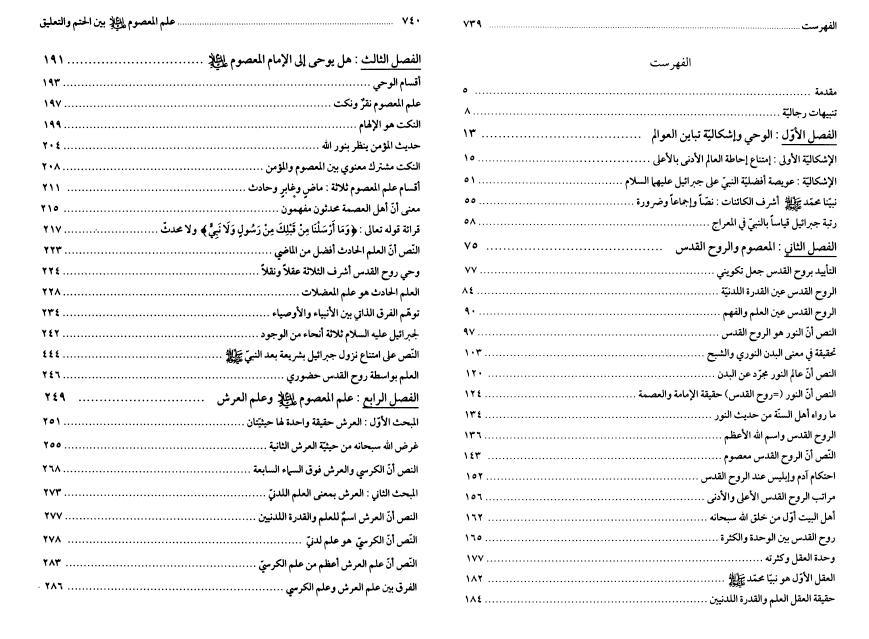 الفهرست ........ ٧٣٩
الفهرست
مقدمة ........ ٥
تنبيهات رجاليّة ........ ٨
الفصل الأوّل : الوحي وإشكاليّة تباين العوالم ........ ١٣
الإشكاليّة الأولى : إمتناع إحاطة العالم الأدنى بالأعلى ........ ١٥
الإشكاليّة : عويصة أفضليّة النبيّ على جبرائيل عليهما السلام ........ ٥١
نبيّنا محمّد ﷺ أشرف الكائنات : نصّاً وإجماعاً وضرورة ........ ٥٥
رتبة جبرائيل قياساً بالنبيّ في المعراج ........ ٥٨
الفصل الثاني : المعصوم والروح القدس ........ ٧٥
التأييد بروح القدس جعل تكويني ........ ٧٧
الروح القدس عين القدرة اللدنيّة ........ ٨٤
الروح القدس عين العلم والفهم ........ ٩٠
النص أنّ النور هو الروح القدس ........ ٩٧
تحقيقة في معنى البدن النوري والشبح ........ ١٠٣
النص أنّ عالم النور مجرّد عن البدن ........ ١٢٠
النص أنّ النور (=روح القدس) حقيقة الإمامة والعصمة ........ ١٢٤
ما رواه أهل السنّة من حديث النور ........ ١٣٤
الروح القدس واسم الله الأعظم ........ ١٣٦
النّص أنّ الروح القدس معصوم ........ ١٤٣
احتكام آدم وإبليس عند الروح القدس ........ ١٥٢
مراتب الروح القدس الأعلى والأدنى ........ ١٥٦
أهل البيت أوّل من خلق الله سبحانه ........ ١٦٢
روح القدس بين الوحدة والكثرة ........ ١٦٥
وحدة العقل وكثرته ........ ١٧٧
العقل الأوّل هو نبيّنا محمّد ﷺ ........ ١٨٢
حقيقة العقل العلم والقدرة اللدنيين ........ ١٨٤
٧٤٠ ........ علم المعصوم ﷺ بين الحتم والتعليق
الفصل الثالث : هل يوحى إلى الإمام المعصوم ﷺ ........ ١٩١
أقسام الوحي ........ ١٩٣
علم المعصوم نقرٌ ونكت ........ ١٩٧
النكت هو الإلهام ........ ١٩٩
حديث المؤمن ينظر بنور الله ........ ٢٠٤
النكت مشترك معنوي بين المعصوم والمؤمن ........ ٢٠٨
أقسام علم المعصوم ثلاثة : ماضٍ وغابرٍ وحادث ........ ٢١١
معنى أنّ أهل العصمة محدثون مفهمون ........ ٢١٥
قرائة قوله تعالى : ﴿وَمَا أَرْسَلْنَا مِنْ قَبْلِكَ مِنْ رَسُولٍ وَلَا نَبِيٍّ﴾ ولا محدثّ ........ ٢١٧
النّص أنّ العلم الحادث أفضل من الماضي ........ ٢٢٣
وحي روح القدس أشرف الثلاثة عقلاً ونقلاً ........ ٢٢٤
العلم الحادث هو علم المعضلات ........ ٢٢٨
توهّم الفرق الذاتي بين الأنبياء والأوصياء ........ ٢٣٤
لجبرائيل عليه السلام ثلاثة أنحاء من الوجود ........ ٢٤٢
النّص على امتناع نزول جبرائيل بشريعة بعد النبيّ ﷺ ........ ٤٤٤
العلم بواسطة روح القدس حضوري ........ ٢٤٦
الفصل الرابع : علم المعصوم ﷺ وعلم العرش ........ ٢٤٩
المبحث الأوّل : العرش حقيقة واحدة لها حيثيّتان ........ ٢٥١
غرض الله سبحانه من حيثيّة العرش الثانية ........ ٢٥٥
النص أنّ الكرسي والعرش فوق السماء السابعة ........ ٢٦٨
المبحث الثاني : العرش بمعنى العلم اللدنيّ ........ ٢٧٣
النص أنّ العرش اسمٌ للعلم والقدرة اللدنيين ........ ٢٧٧
النّص أنّ الكرسيّ هو علم لدنيّ ........ ٢٧٨
النّص أنّ علم العرش أعظم من علم الكرسيّ ........ ٢٨٣
الفرق بين علم العرش وعلم الكرسي ........ ٢٨٦